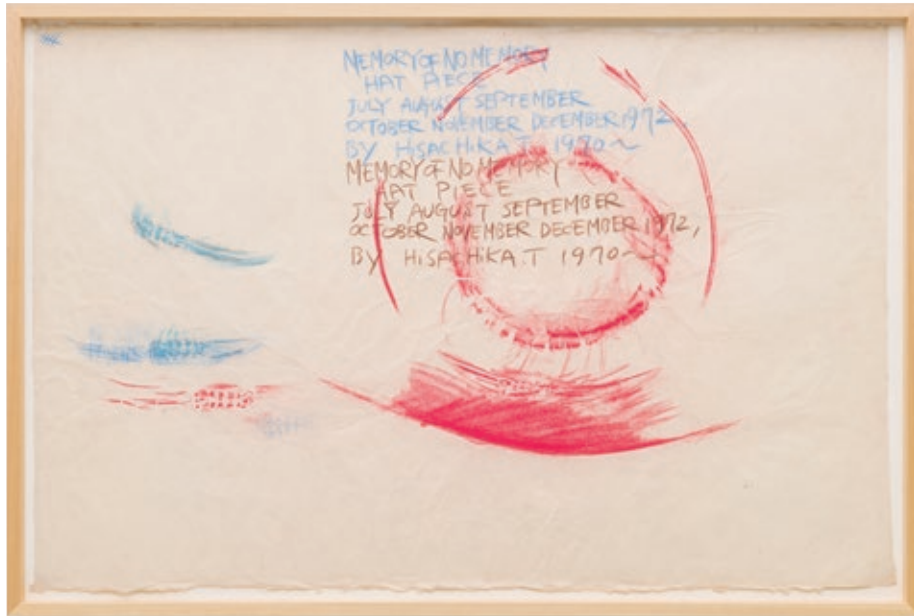 MEMORY OF NO MEMORY
HAT PIECE
JULY AUGUST SEPTEMBER
OCTOBER NOVEMBER DECEMBER 1972
BY HISACHIKA.T 1970~
MEMORY OF NO MEMORY
HAT PIECE
JULY AUGUST SEPTEMBER
OCTOBER NOVEMBER DECEMBER 1972,
BY HISACHIKA.T 1970~